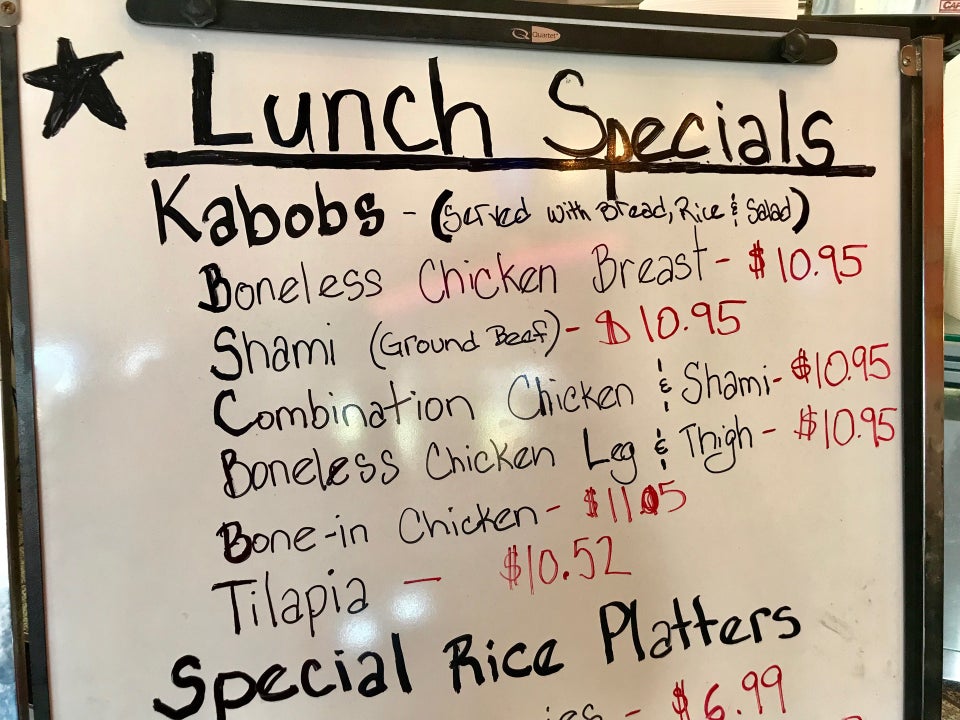 Quartet
Lunch Specials
Kabobs - (Served with Bread, Rice & Salad)
Boneless Chicken Breast - $10.95
Shami (Ground Beef) - $10.95
Combination Chicken & Shami - $10.95
Boneless Chicken Leg & Thigh - $10.95
Bone-in Chicken - $11.05
Tilapia - $10.52
Special Rice Platters
- $6.99